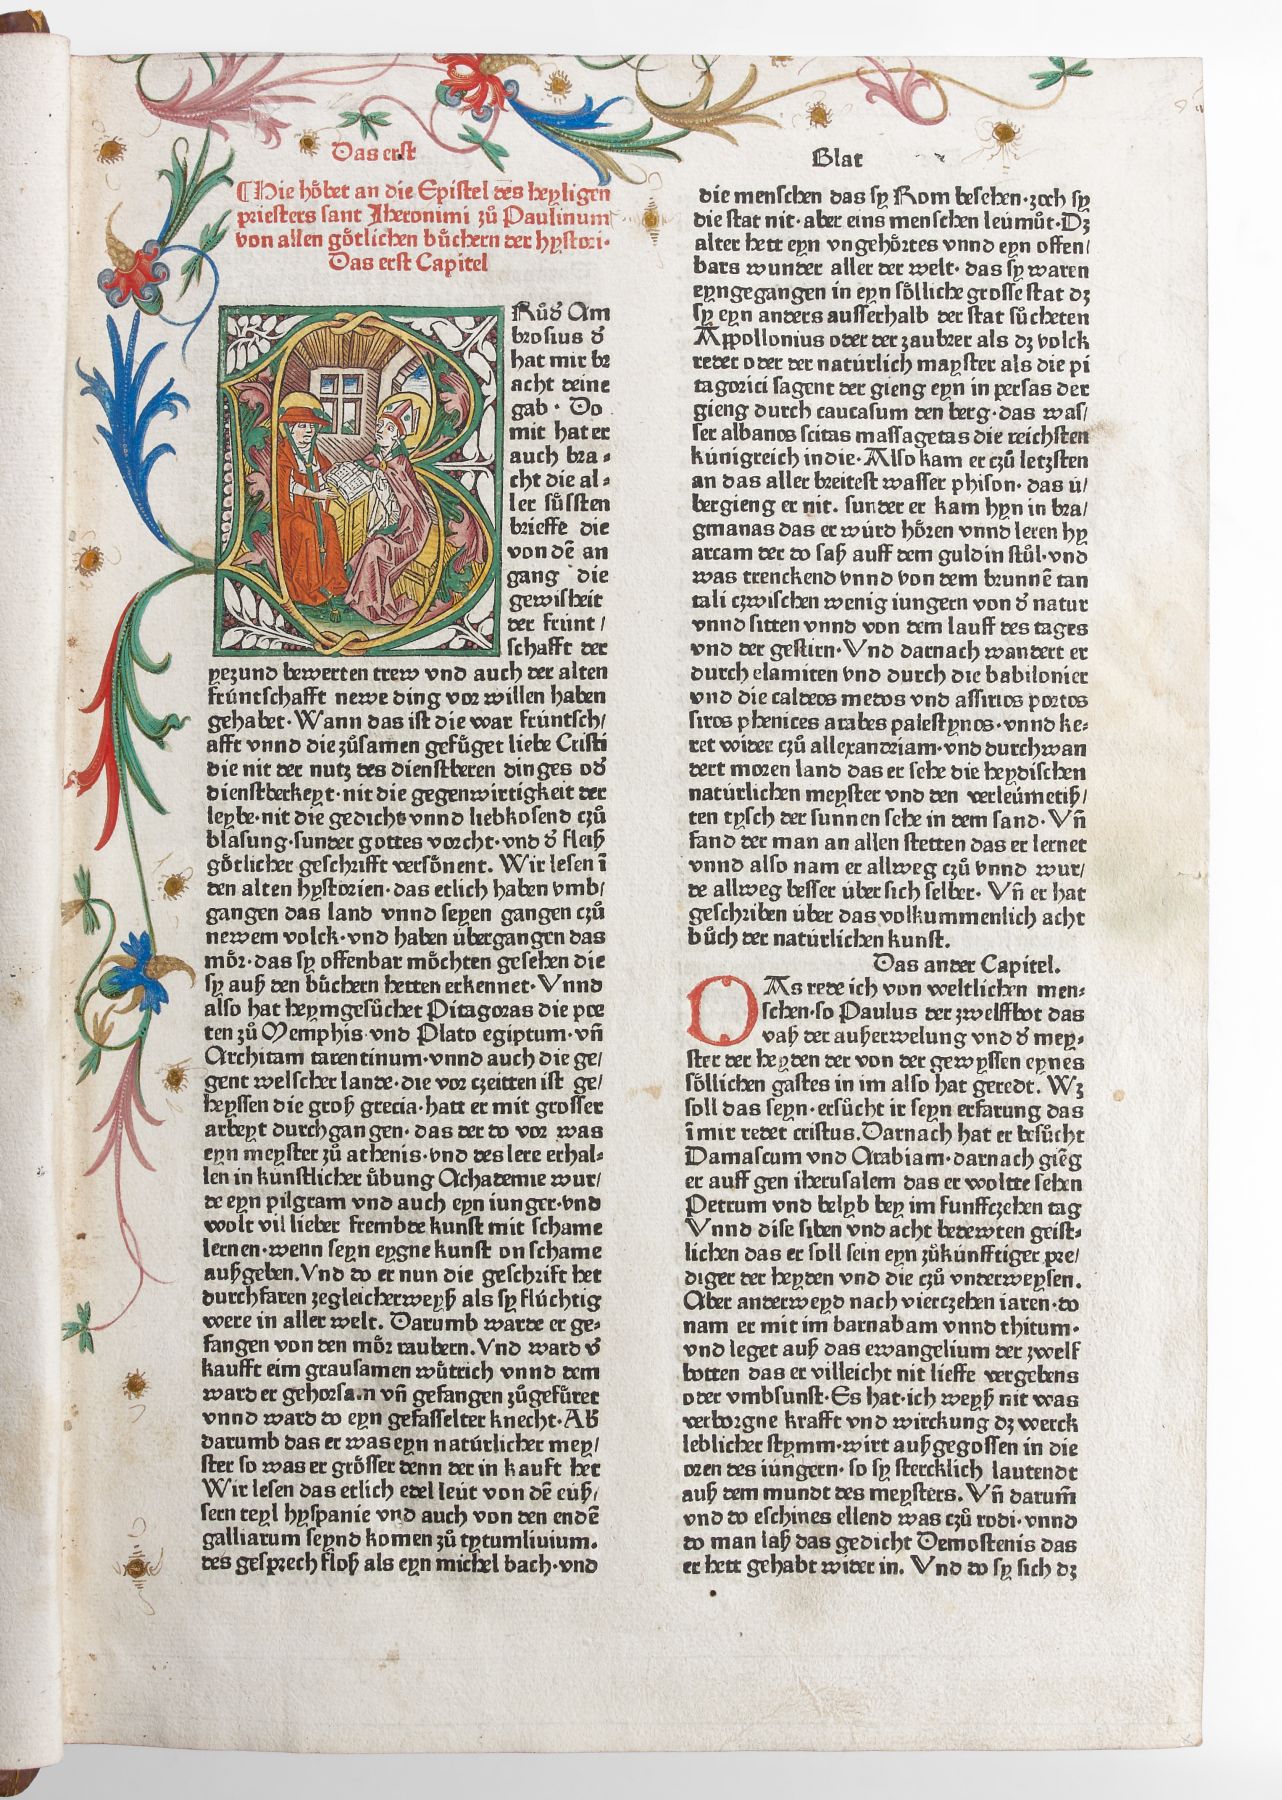 Das erst
Blat
Hie hȯbet an die Epistel des heyligen
priesters sant Jheronimi zů Paulinum
von allen gȯtlichen bůchern der hystori·
Das erst Capitel
Růď Am
brosius ď
hat mir br
acht deine
gab· Do
mit hat er
auch bra⸗
cht die al⸗
ler sůssten
brieffe die
von dē an
gang die
gewisheit
der frúnt/
schafft der
yezund bewerten trew vnd auch der alten
frúntschafft newe ding vor willen haben
gehabet·Wann das ist die war frúntsch/
afft vnnd die zůsamen gefůget liebe Cristi
die nit der nutz des dienstberen dinges oď
dienstberkeyt·nit die gegenwirtigkeit der
leybe·nit die gedicht vnnd liebkosend czů
blasung·sunder gottes vorcht·vnd ď fleiß
gȯtlicher geschrifft versȯnent. Wir lesen ī
den alten hystorien·das etlich haben vmb/
gangen das land vnnd seyen gangen czů
newem volck·vnd haben übergangen das
mȯr·das sy offenbar mȯchten gesehen die
sy auß den bůchern hetten erkennet·Vnnd
also hat heymgesůchet Pitagoras die poe
ten zů Memphis·vnd Plato egiptum·vñ
Architam tarentinum·vnnd auch die ge/
gent welscher lande·die vor czeitten ist ge/
heyssen die groß grecia·hatt er mit grosser
arbeyt durchgangen·das der do vor was
eyn meyster zů athenis·vnd des lere erhal⸗
len in kúnstlicher ůbung Achademie wur/
de eyn pilgram vnd auch eyn iunger·vnd
wolt vil lieber frembde kunst mit schame
lernen·wenn seyn eygne kunst on schame
außgeben.Vnd do er nun die geschrift het
durchfaren zegleicherweyß als sy flúchtig
were in aller welt. Darumb warde er ge⸗
fangen von den mȯr raubern.Vnd ward v̇
kaufft eim grausamen wůtrich vnnd dem
ward er gehorsam vñ gefangen zůgefůret
vnnd ward do eyn gefasselter knecht·Ab
darumb das er was eyn natúrlicher mey/
ster so was er grȯsser denn der in kauft het
Wir lesen das etlich edel leút von dē eúß/
sern teyl hyspanie vnd auch von den endē
galliarum seynd komen zů tytumliuium.
des gesprech floß als eyn michel bach·vnd
die menschen das sy Rom besehen·zoch sy
die stat nit·aber eins menschen leúmůt·Dʒ
alter hett eyn vngehȯrtes vnnd eyn offen/
bars wunder aller der welt·das sy waren
eyngegangen in eyn sȯlliche grosse stat dʒ
sy eyn anders ausserhalb der stat sůcheten
Appollonius oder der zaubrer als dʒ volck
redet oder der natúrlich mayster als die pi
tagorici sagent der gieng eyn in persas der
gieng durch caucasum den berg·das was/
ser albanos scitas massagetas die reichsten
kúnigreich indie·Also kam er czů letzsten
an das aller breitest wasser phison·das ú/
bergieng er nit. sunder er kam hyn in bra/
gmanas das er wúrd hȯren vnnd leren hy
arcam der do saß auff dem guldin stůl·vnd
was trenckend vnnd von dem brunnē tan
tali czwischen wenig iungern von ď natur
vnnd sitten vnnd von dem lauff des tages
vnd der gestirn·Vnd darnach wandert er
durch elamiten vnd durch die babilonier
vnd die caldeos medos vnd assirios portos
siros phenices arabes palestynos·vnnd ke⸗
ret wider czů allexandriam·vnd durchwan
dert moren land das er sehe die heydischen
natúrlichen meyster vnd den verleúmetiß/
ten tysch der sunnen sehe in dem sand·Vñ
fand der man an allen stetten das er lernet
vnnd also nam er allweg czů vnnd wur/
de allweg besser über sich selber. Vñ er hat
geschriben über das volkummenlich acht
bůch der natúrlichen kunst.
Das ander Capitel.
DAs rede ich von weltlichen men⸗
schen·so Paulus der zwelffbot das
vaß der außerwelung vnd ď mey⸗
ster der heyden der von der gewyssen eynes
sȯllichen gastes in im also hat geredt. Wʒ
soll das seyn·ersůcht ir seyn erfarung das
ī mir redet cristus.Darnach hat er besůcht
Damascum vnd Arabiam·darnach giēg
er auff gen iherusalem das er woltte sehen
Petrum vnd belyb bey im funffczehen tag
Vnnd dise siben vnd acht bedewten geist⸗
lichen das er soll sein eyn zůkúnfftiger pre/
diger der heyden vnd die czů vnderweysen.
Aber anderweyd nach vierczehen iaren·do
nam er mit im barnabam vnnd thitum·
vnd leget auß das ewangelium der zwelf
botten das er villeicht nit lieffe vergebens
oder vmbsunst·Es hat·ich weyß nit was
verborgne krafft vnd wirckung dʒ werck
leblicher stymm·wirt außgegossen in die
oren des iúngern· so sy stercklich lautendt
auß dem mundt des meysters. Vñ darum̄
vnd do eschines ellend was czů rodi·vnnd
do man laß das gedicht Demostenis das
er hett gehabt wider in. Vnd do sy sich dʒ